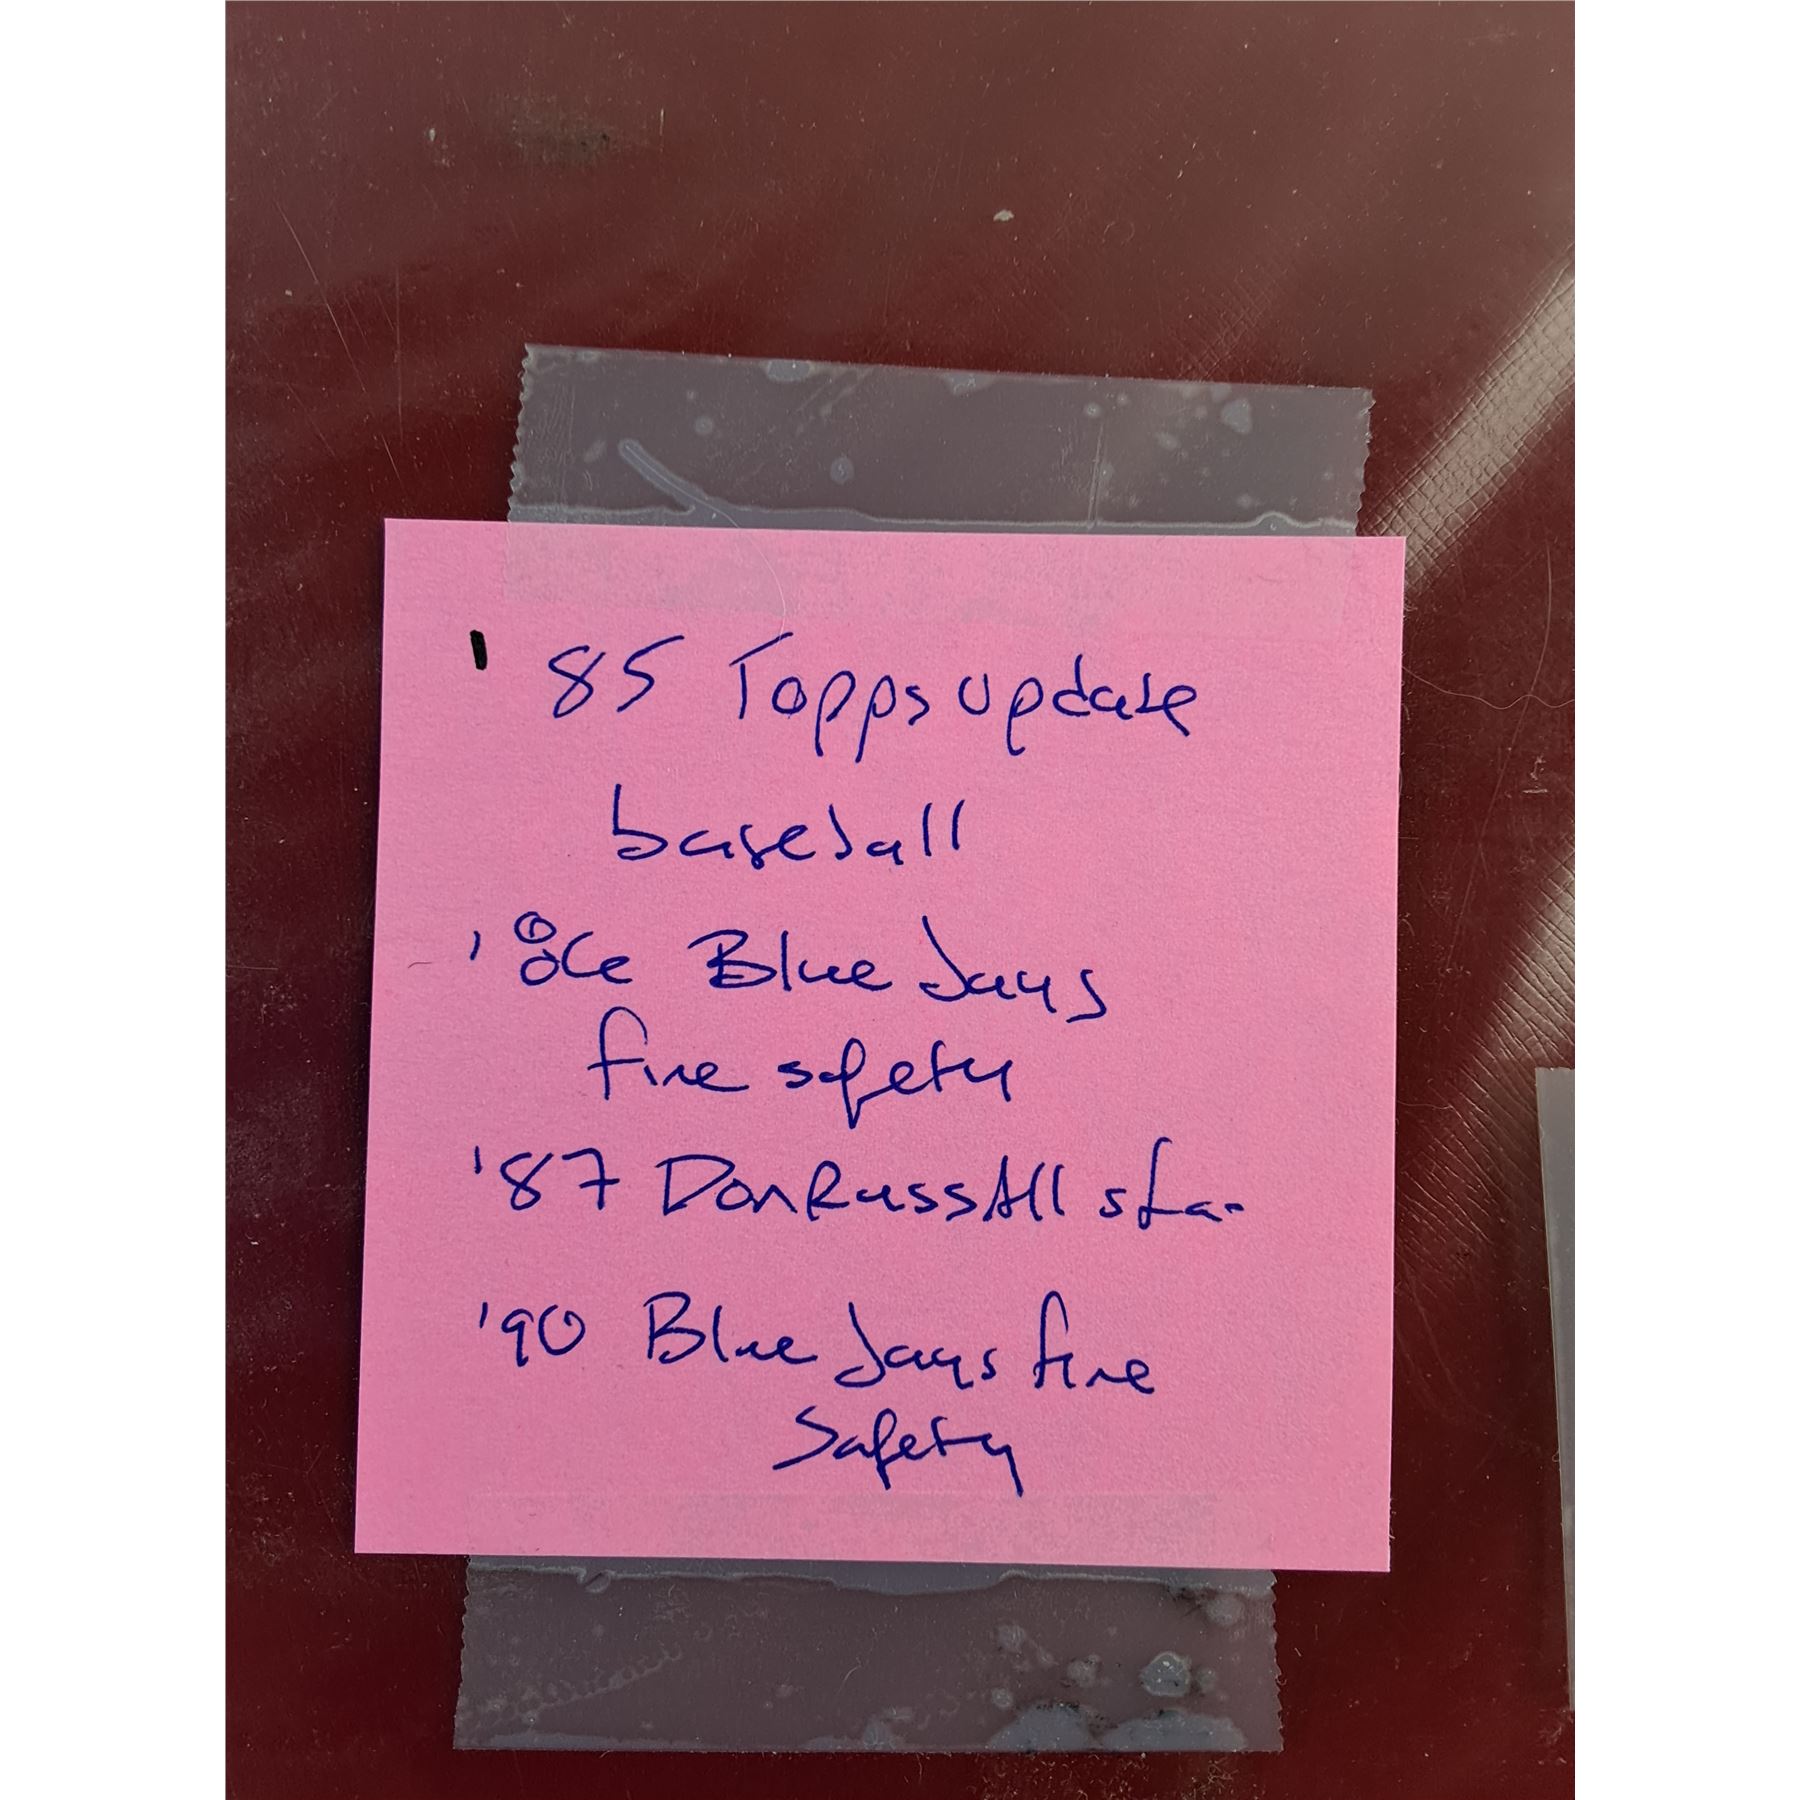 '85 Topps update
baseball
'86 Blue Jays
fire safety
'87 DonRuss All star
'90 Blue Jays fire
Safety